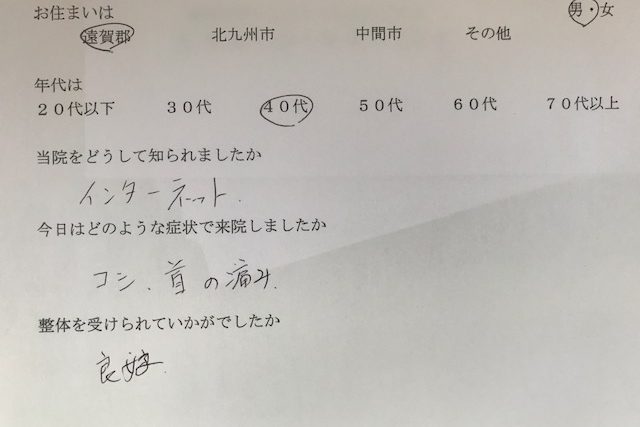 お住まいは
男・女
遠賀郡 北九州市 中間市 その他
年代は
２０代以下 ３０代 ４０代 ５０代 ６０代 ７０代以上
当院をどうして知られましたか
インターネット.
今日はどのような症状で来院しましたか
コシ、首の痛み.
整体を受けられていかがでしたか
良好.